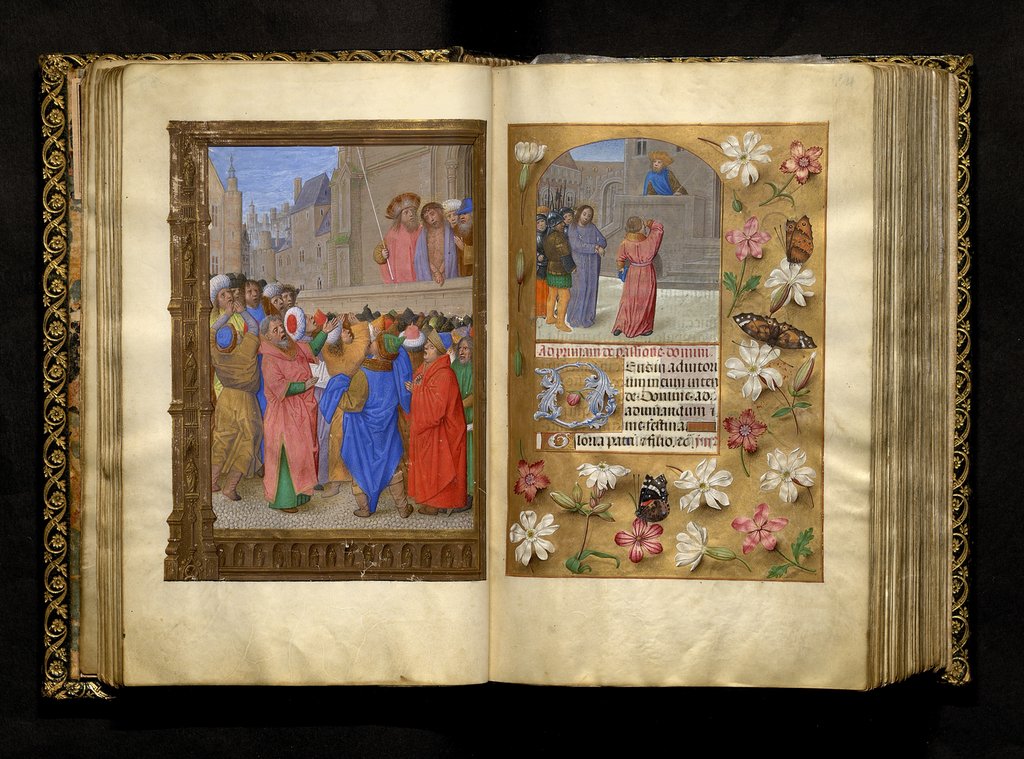 Ad primam de passione domini.
Deus in adiutori
um meum inten
de. Domine ad
adiuvandum
me festina.
Gloria patri et filio, et